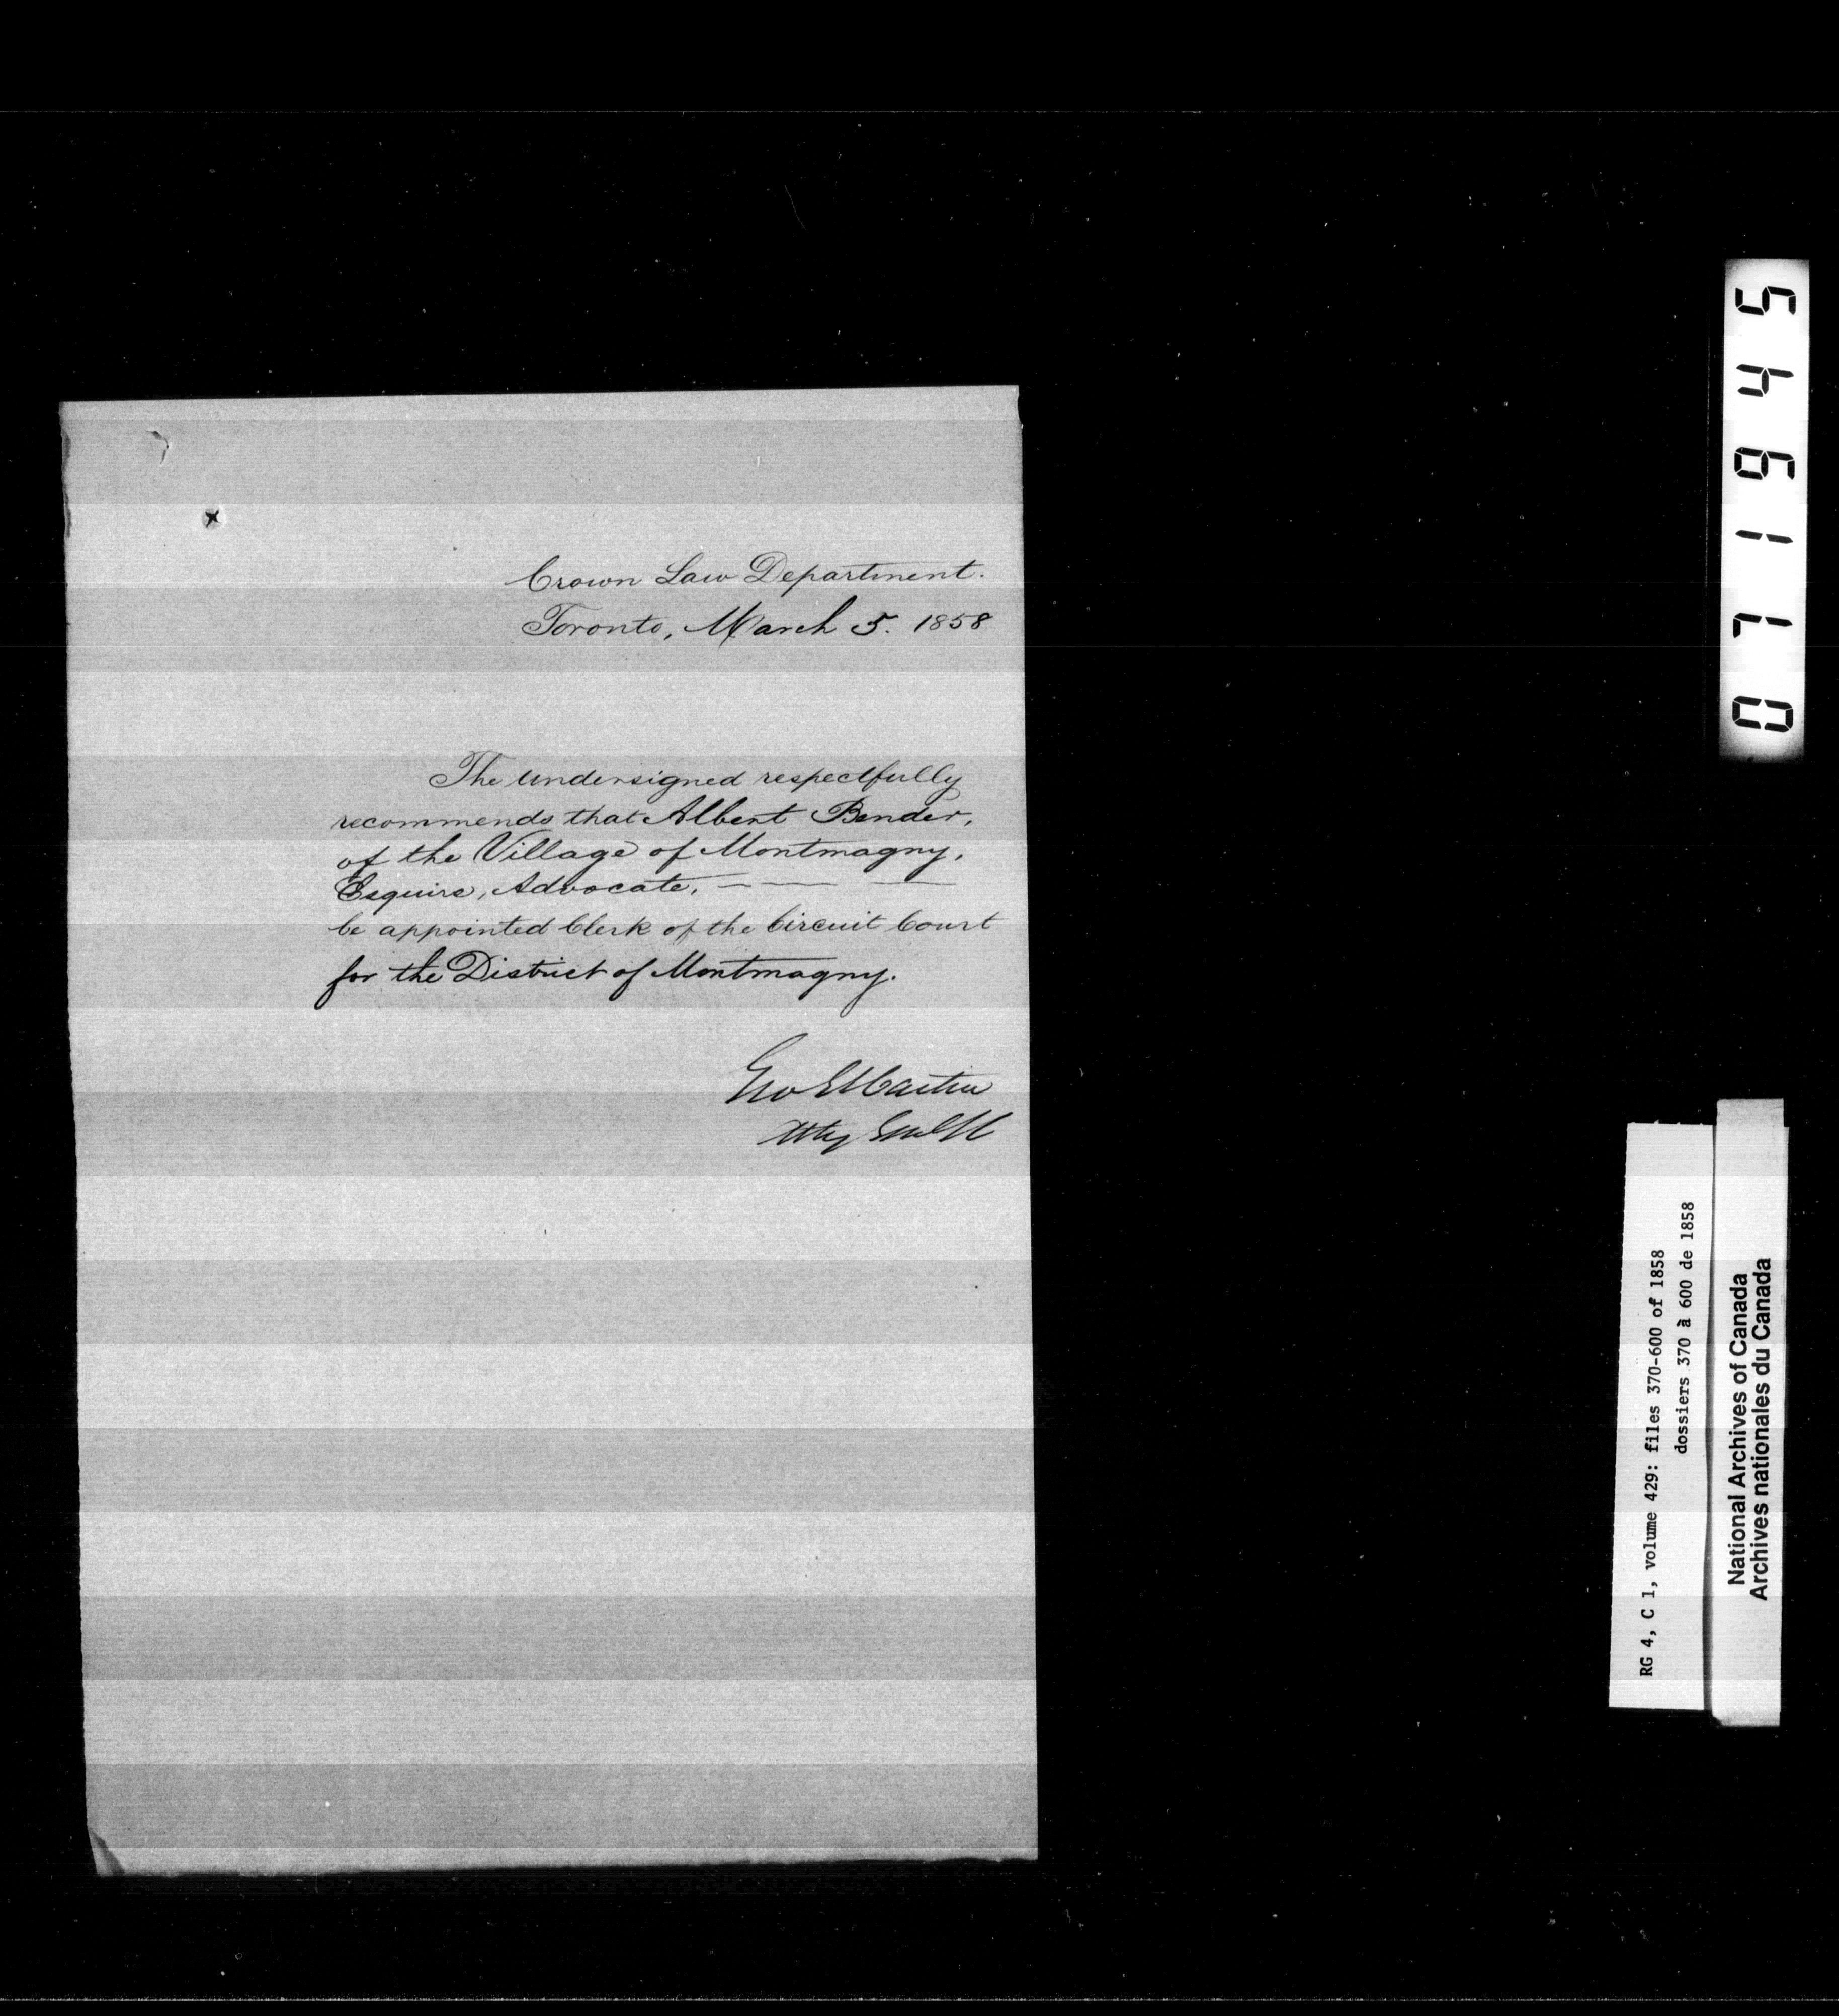 Crown Law Department.
Toronto, March 5. 1858
The undersigned respectfully
recommends that Albert Bender,
of the Village of Montmagny,
Esquire, Advocate. — — —
be appointed Clerk of the Circuit Court
for the District of Montmagny.
Geo E Cartier
Atty Genl
071945
RG 4, C 1, volume 429: files 370-600 of 1858
dossiers 370 à 600 de 1858
National Archives of Canada
Archives nationales du Canada